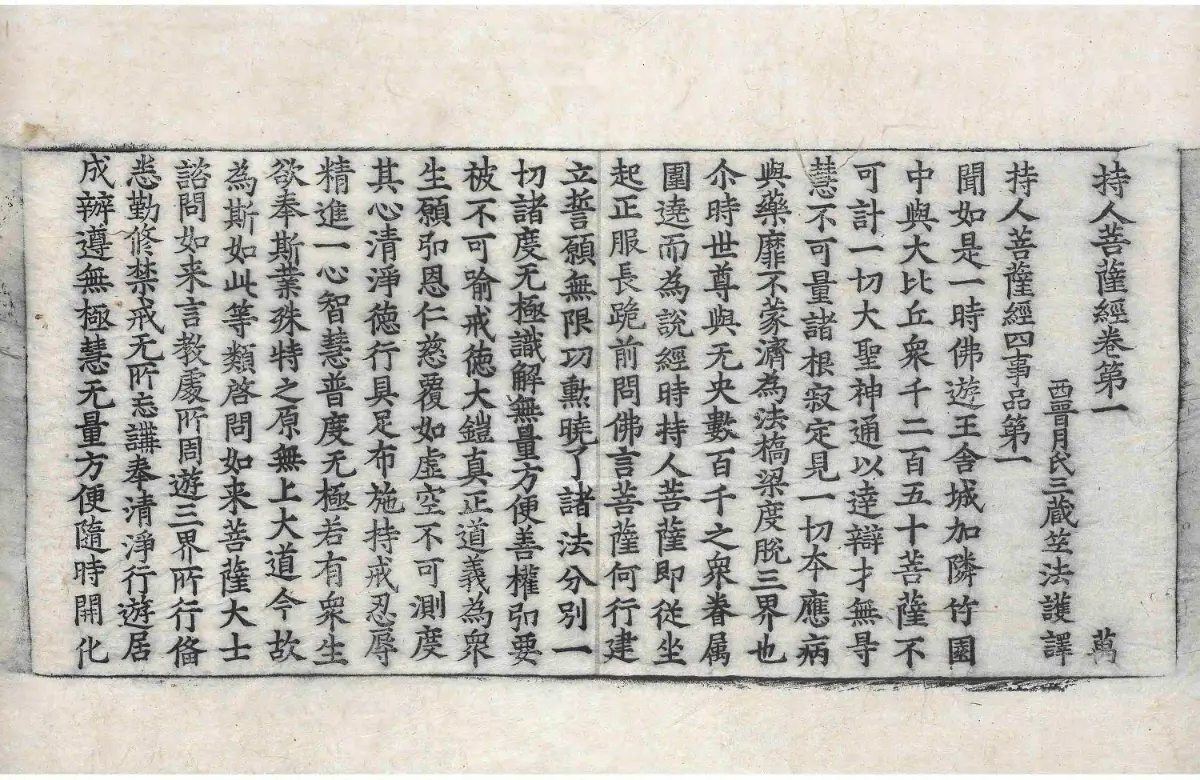 持人菩薩經卷第一 萬
西晉月氏三藏竺法護譯
持人菩薩經四事品第一
聞如是一時佛遊王舍城加隣竹園
中與大比丘衆千二百五十菩薩不
可計一切大聖神通以達辯才無㝵
慧不可量諸根寂定見一切夲應病
與藥靡不蒙濟為法橋梁度脫三界也
尒時世尊與无央數百千之衆眷属
圍遶而為說經時持人菩薩即從坐
起正服長跪前問佛言菩薩何行建
立誓願無限功勲曉了諸法分別一
切諸度无極識解無量方便善權弘要
被不可喻戒德大鎧真正道義為衆
生願弘恩仁慈覆如虛空不可測度
其心清淨德行具足布施持戒忍辱
精進一心智慧普度无極若有衆生
欲奉斯業殊特之原無上大道今故
為斯如此等類啓問如来菩薩大士
諮問如来言教處所周遊三界所行俻
悉勤修禁戒无所忘講奉清淨行遊居
成辦遵無極慧无量方便隨時開化